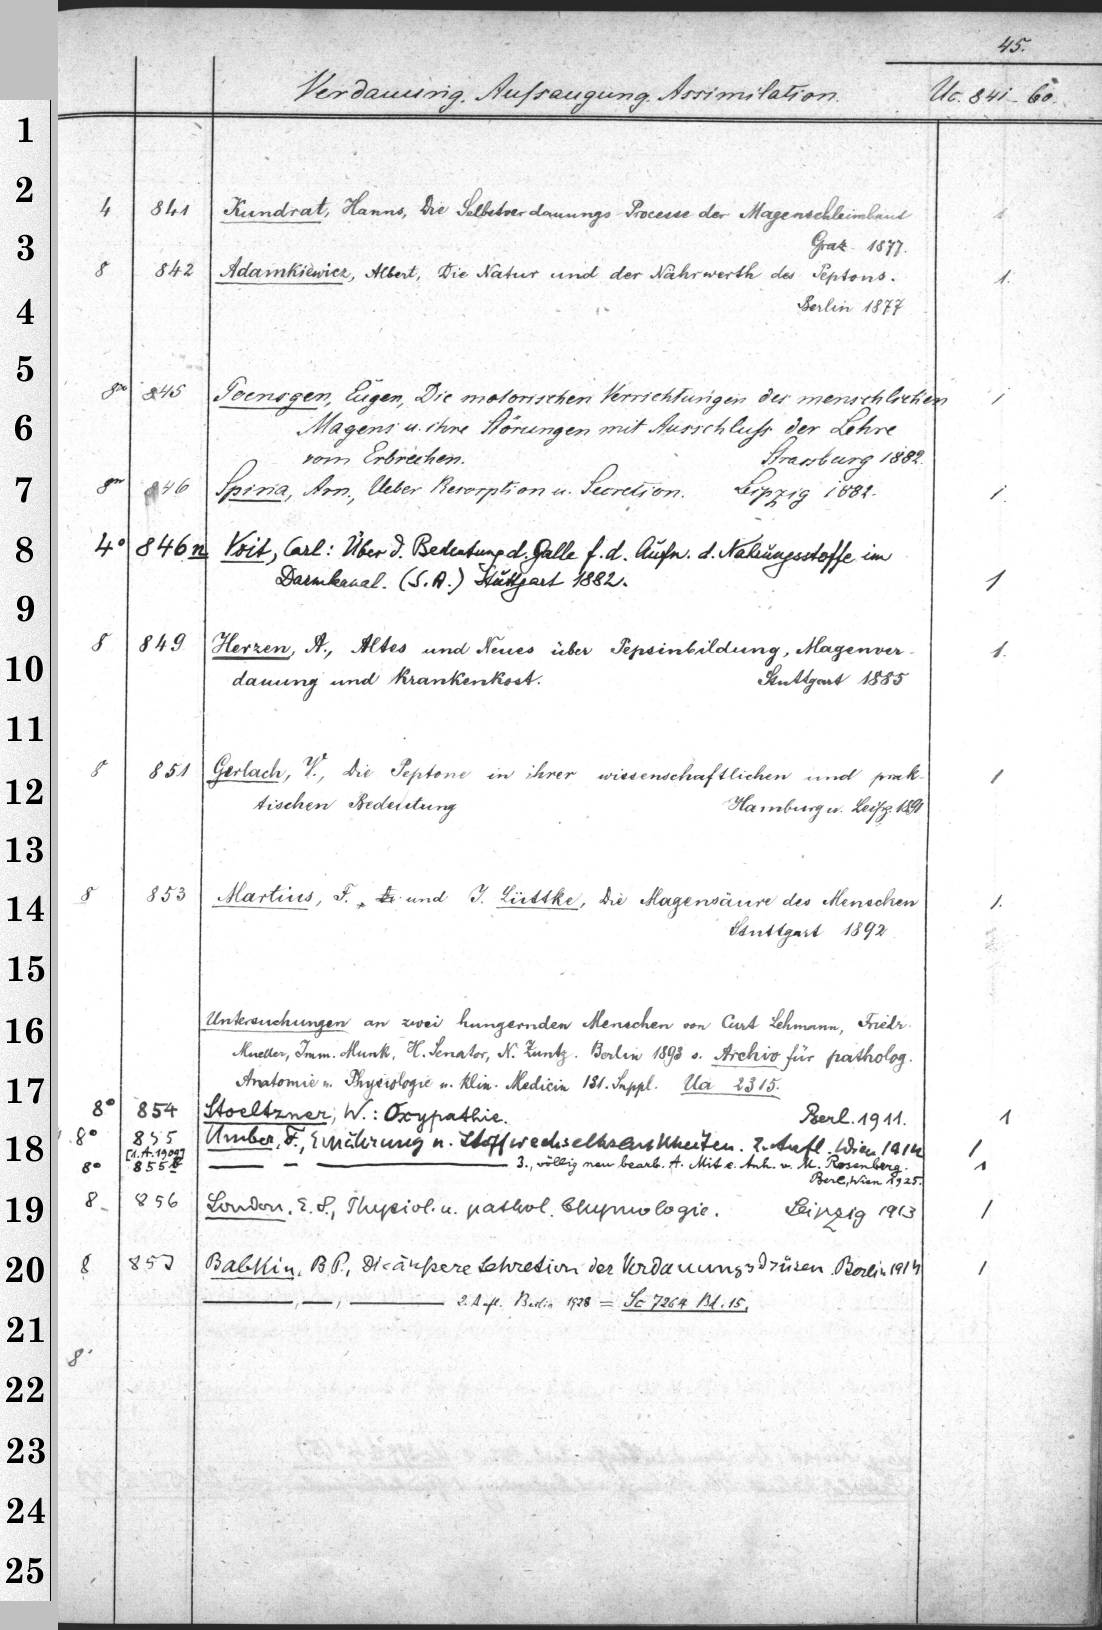 45.
Verdauung. Aufsaugung. Assimilation. Uc. 841-60.
1
2
4 841 Kundrat, Hanns, Die Selbstverdauungs Processe der Magenschleimhaut 1
Graz 1877.
3
8 842 Adamkiewicz, Albert, Die Natur und der Nährwerth des Peptons. 1.
Berlin 1877
4
5
8vo 845 Poensgen, Eugen, Die motorischen Verrichtungen des menschlichen 1
6
Magens u. ihre Störungen mit Ausschluss der Lehre
vom Erbrechen. Strassburg 1882.
7
846 Spina, Arn., Ueber Resorption u. Secretion. Leipzig 1882. 1
8
4° 846n Voit, Carl: Über d. Bedeutung d. Galle f. d. Aufn. d. Nahrungsstoffe im
Darmkanal. (S.A.) Stuttgart 1882. 1
9
8 849 Herzen, A., Altes und Neues über Pepsinbildung, Magenver- 1.
10
dauung und Krankenkost. Stuttgart 1885
11
8 851 Gerlach, V., Die Peptone in ihrer wissenschaftlichen und prak- 1
12
tischen Bedeutung Hamburg u. Leipz. 1891
13
8 853 Martius, F. und J. Lüttke, Die Magensäure des Menschen 1.
14
Stuttgart 1892
15
Untersuchungen an zwei hungernden Menschen von Curt Lehmann, Friedr.
16
Mueller, Imm. Munk, H. Senator, N. Zuntz. Berlin 1893 s. Archiv für patholog.
Anatomie u. Physiologie u. klin. Medicin 131. Suppl. Ua 2315.
17
8° 854 Stoeltzner, W.: Oxypathie. Berl. 1911. 1
8° 855 Umber, F., Ernährung u. Stoffwechselkrankheiten. 2. Aufl. Wien 1914 1
18
[1. A. 1909]
8° 855b — — — 3., völlig neu bearb. A. Mit e. Anh. v. M. Rosenberg. 1
Berl., Wien 1925.
19
8 856 London, E. S., Physiol. u. pathol. Chymologie. Leipzig 1913 1
20
8 857 Babkin, B P., Die äussere Sekretion der Verdauungsdrüsen. Berlin 1914 1
—, —, — 2. Aufl. Berlin 1928 = Sc 7264 Bd. 15.
21
8°
22
23
24
25